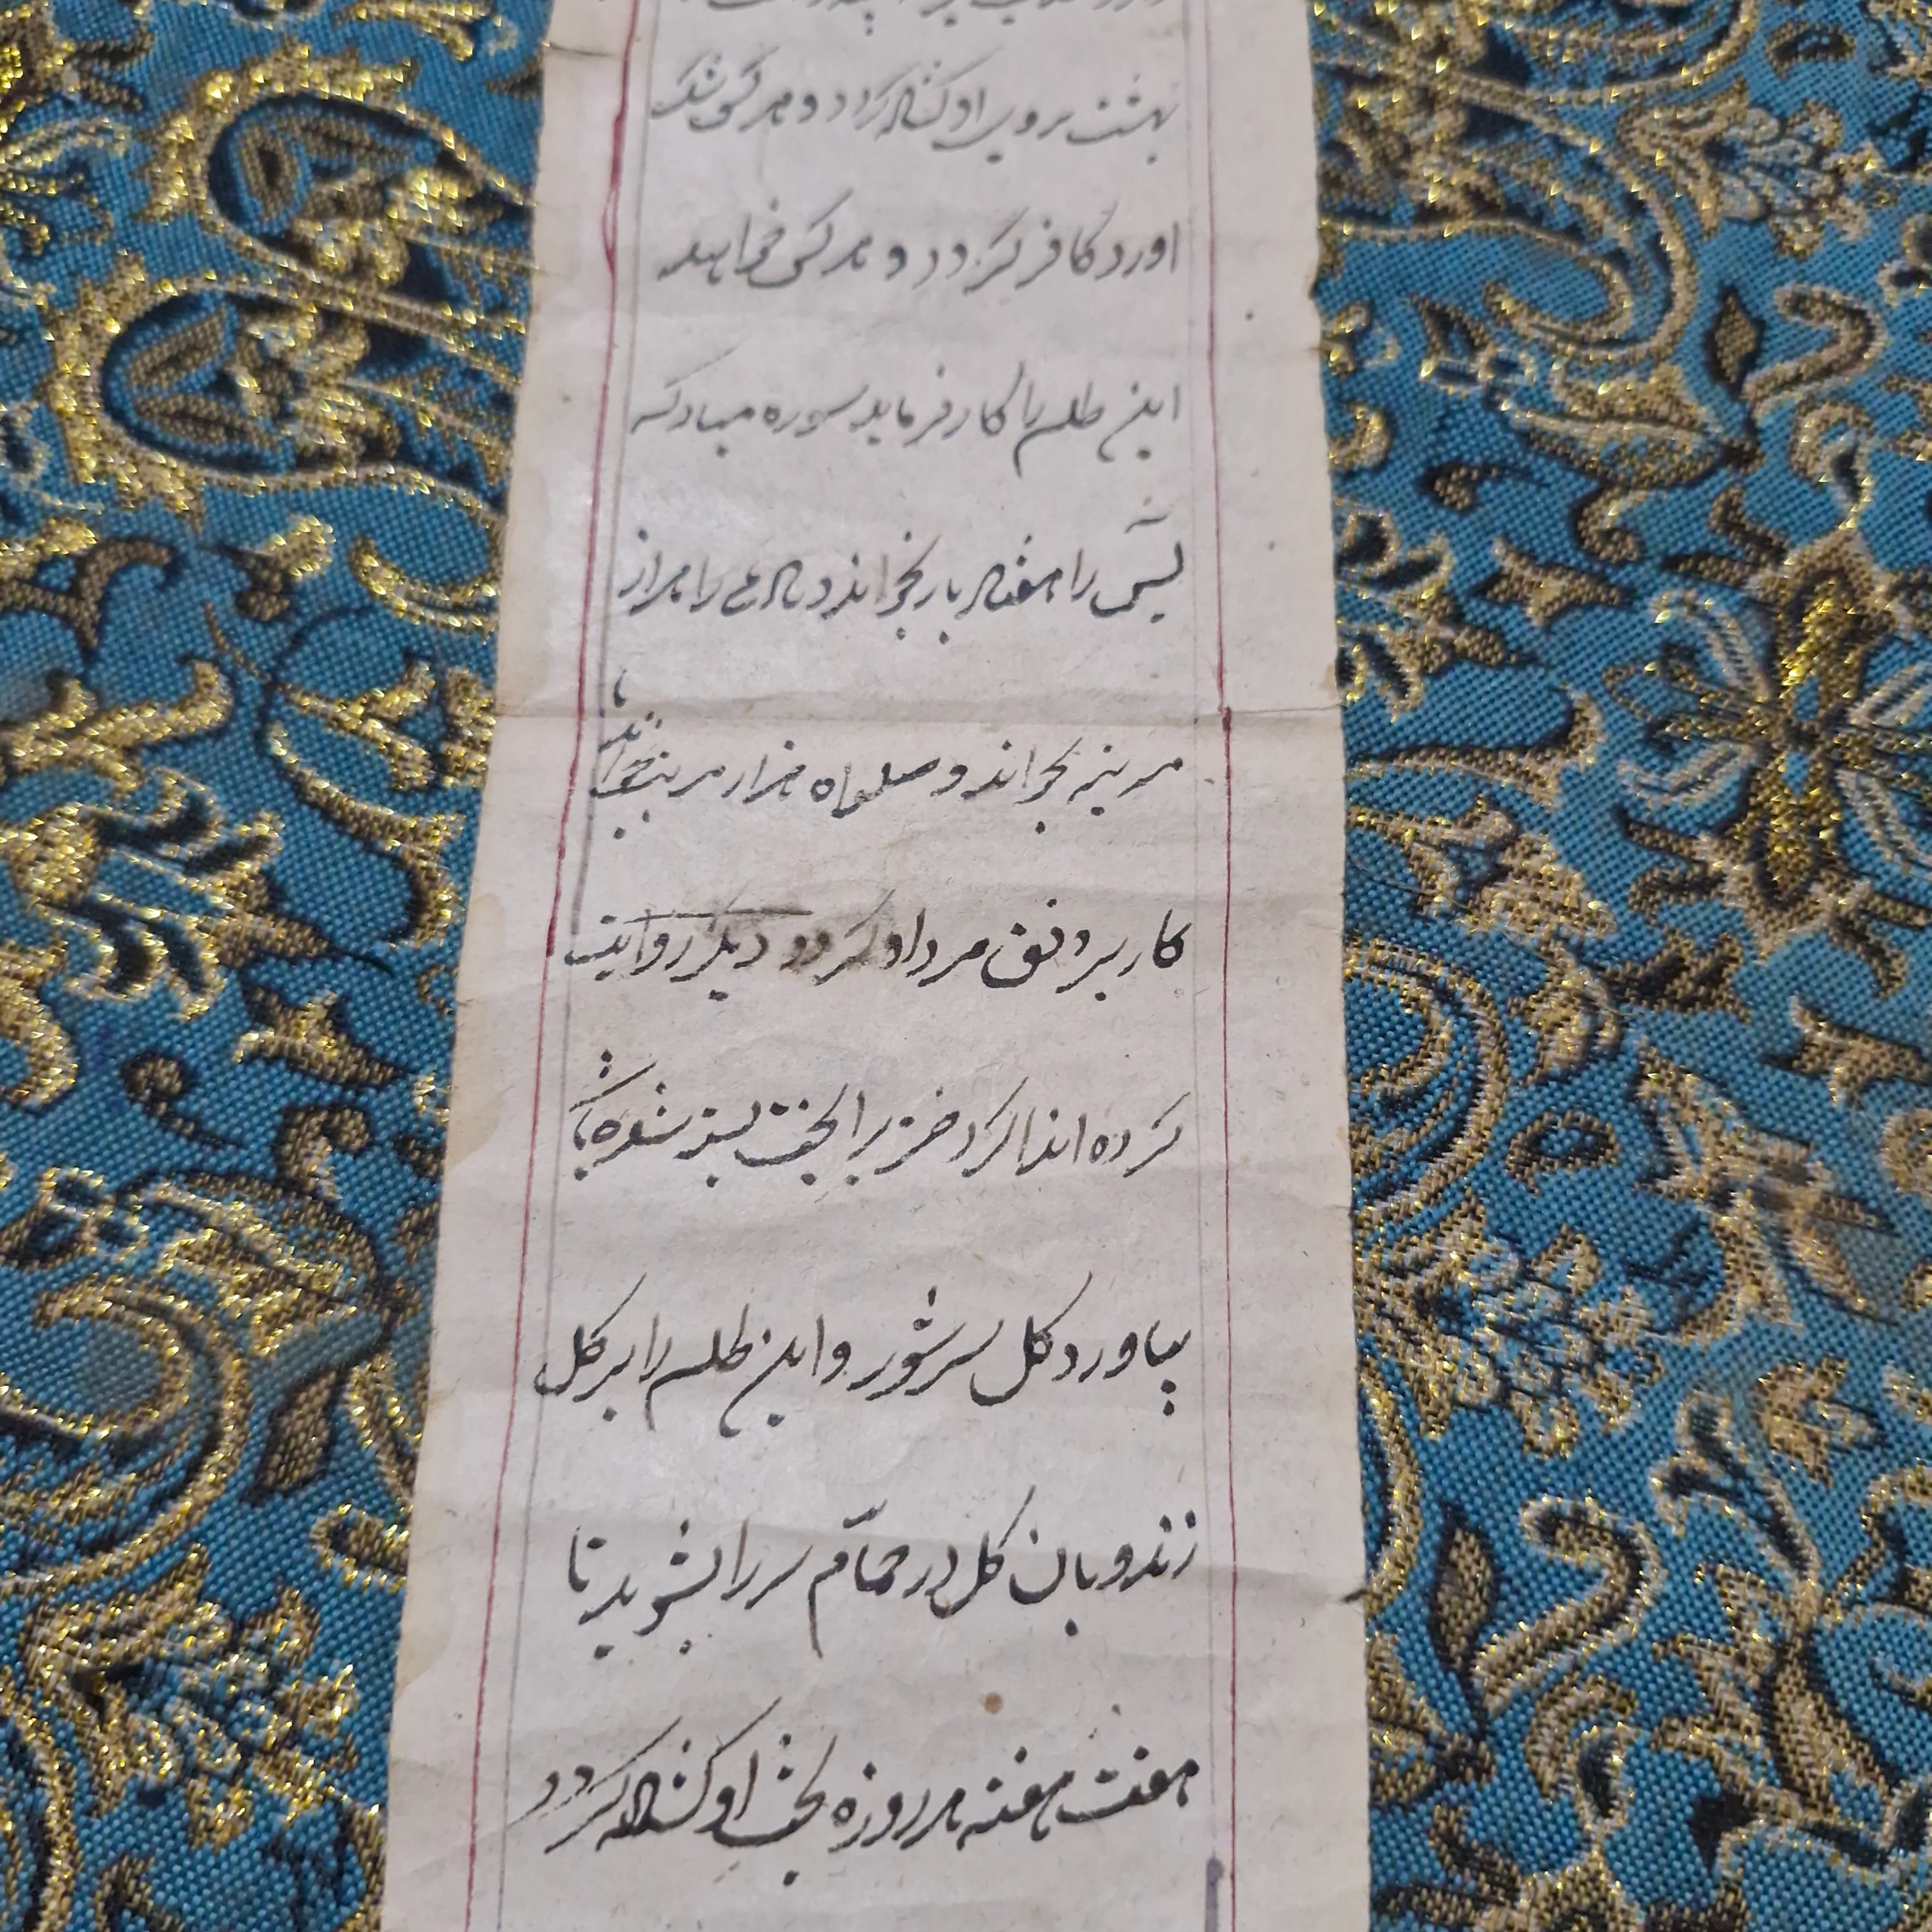 بهشت بروی او کشاده کردد و هر کس شک
اورد کافر کردد و هر کس خواهد
این طلسم را کار فرماید سوره مبارکه
یس را هفتاد بار بخواند و را هزار
مرتبه بخواند و صلواه هزار مرتبه بخواند تا
کار بر وفق مراد او کردد دیکر روایت
کرده اند اکر دختریرا بخت بسته شده باشد
بیاورد کل سرشور و این طلسم را بر کل
زند و بان کل در حمام سر را بشوید تا
هفت هفته هر روزه بخت او کشاده کردد